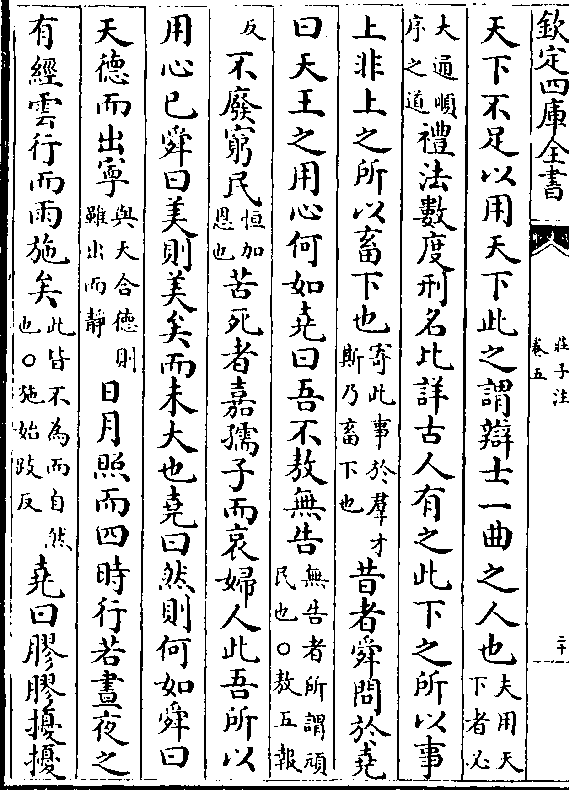 欽定四庫全書
莊子注
卷五
二十
天下不足以用天下此之謂辯士一曲之人也夫用天下者必
大通順序之道禮法數度刑名比詳古人有之此下之所以事
上非上之所以畜下也寄此事於羣才斯乃畜下也昔者舜問於堯
曰天王之用心何如堯曰吾不敖無告無告者所謂頑民也○敖五報
反不廢窮民恒加恩也苦死者嘉孺子而哀婦人此吾所以
用心已舜曰美則美矣而未大也堯曰然則何如舜曰
天德而出寧與天合德則雖出而靜日月照而四時行若晝夜之
有經雲行而雨施矣此皆不為而自然也○施始豉反堯曰膠膠擾擾